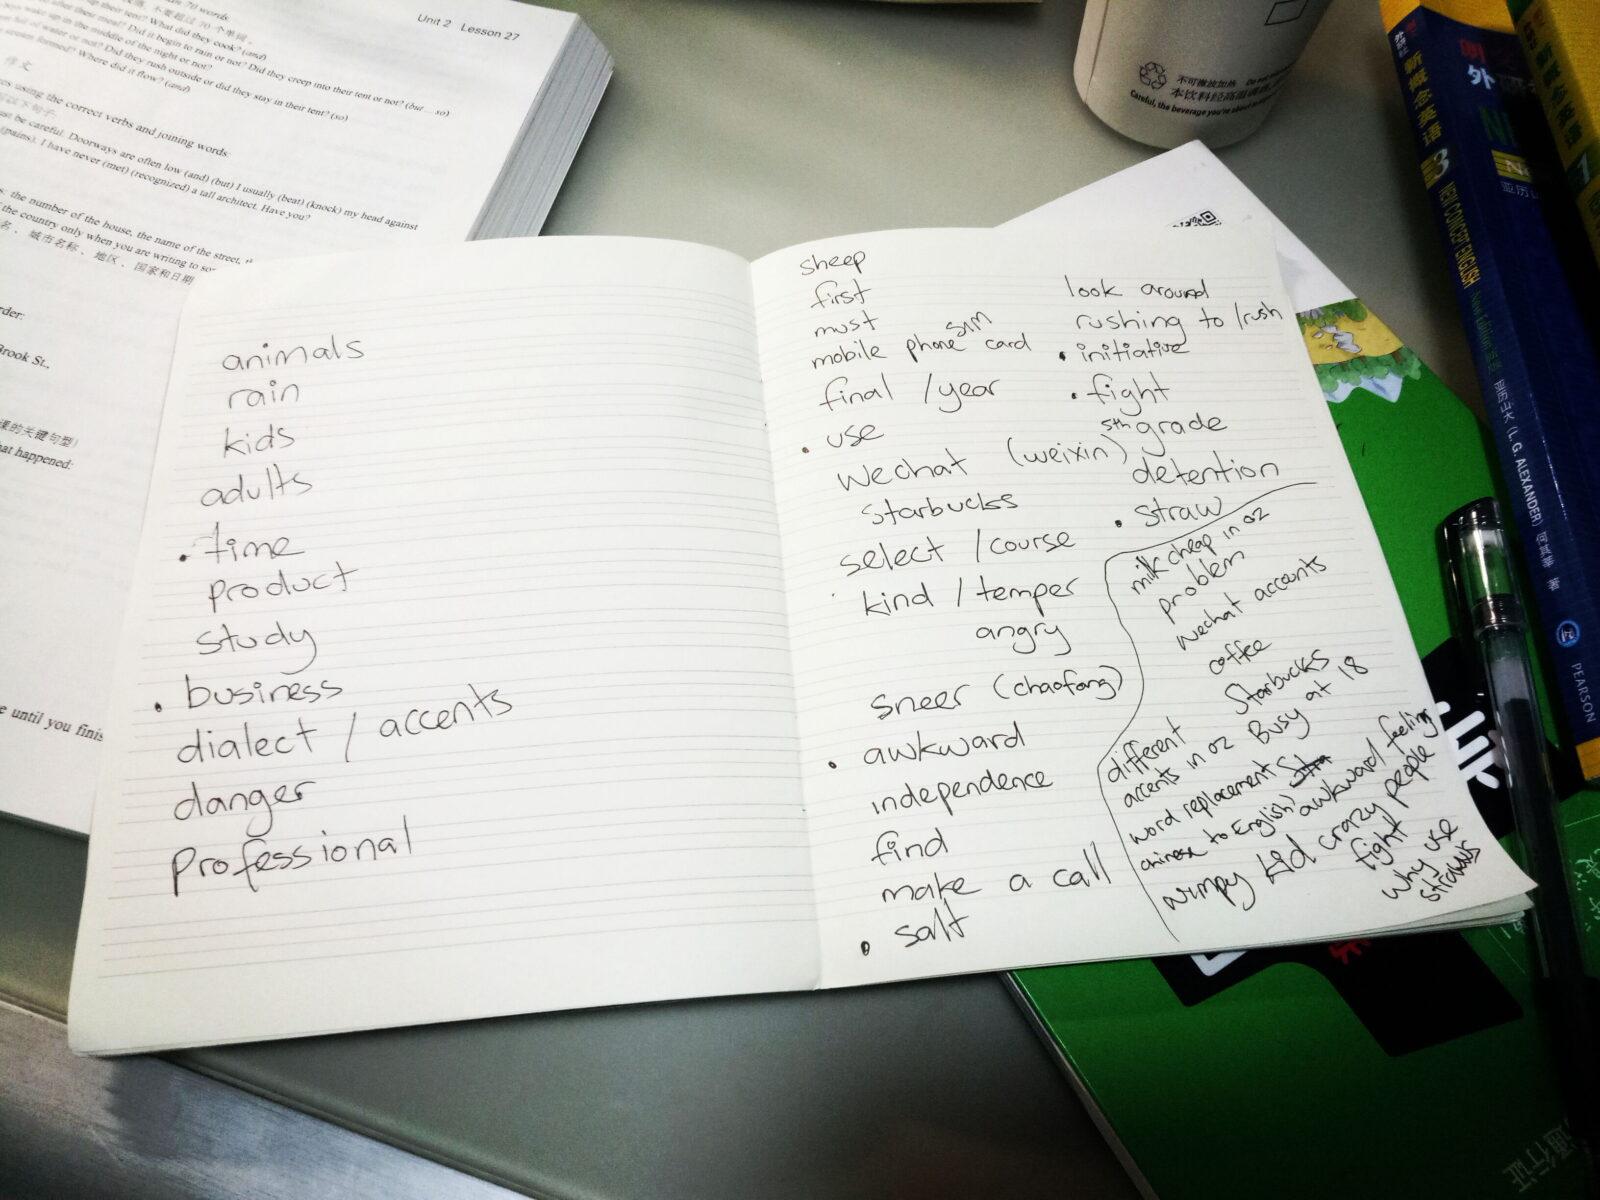 Unit 2 Lesson 27
What did they cook? (and)
Did it begin to rain or not? Did they creep into their tent or not? (but ... so)
Did they rush outside or did they stay in their tent? (so)
Where did it flow? (and)
作文
using the correct verbs and joining words:
be careful. Doorways are often low (and) (but) I usually (beat) (knock) my head against
(pains). I have never (met) (recognized) a tall architect. Have you?
the number of the house, the name of the street,
the country only when you are writing to
城市名称、地区、国家和日期
Brook St.,
课的关键句型)
what happened:
until you finis
animals
rain
kids
adults
• time
product
study
• business
dialect / accents
danger
Professional
sheep
first
must
mobile phone SIM card
final /year
• use
Wechat (weixin)
Starbucks
select /course
kind / temper
angry
sneer (chaofang)
• awkward
independence
find
make a call
• salt
look around
rushing to /rush
• initiative
• fight
5th grade
detention
• straw
milk cheap in oz
problem
wechat accounts
coffee
Starbucks
Busy at 18
different
accents in oz
word replacement
chinese to English)
awkward feeling
wimpy kid crazy people
fight
why use
straws
不可微波加热
本饮料经高温
Careful, the beverage you're about to
外研社
新概念英语
3
NEW CONCEPT ENGLISH
New Edition
(L. G. ALEXANDER) 何其莘 著
PEARSON
1
通行证